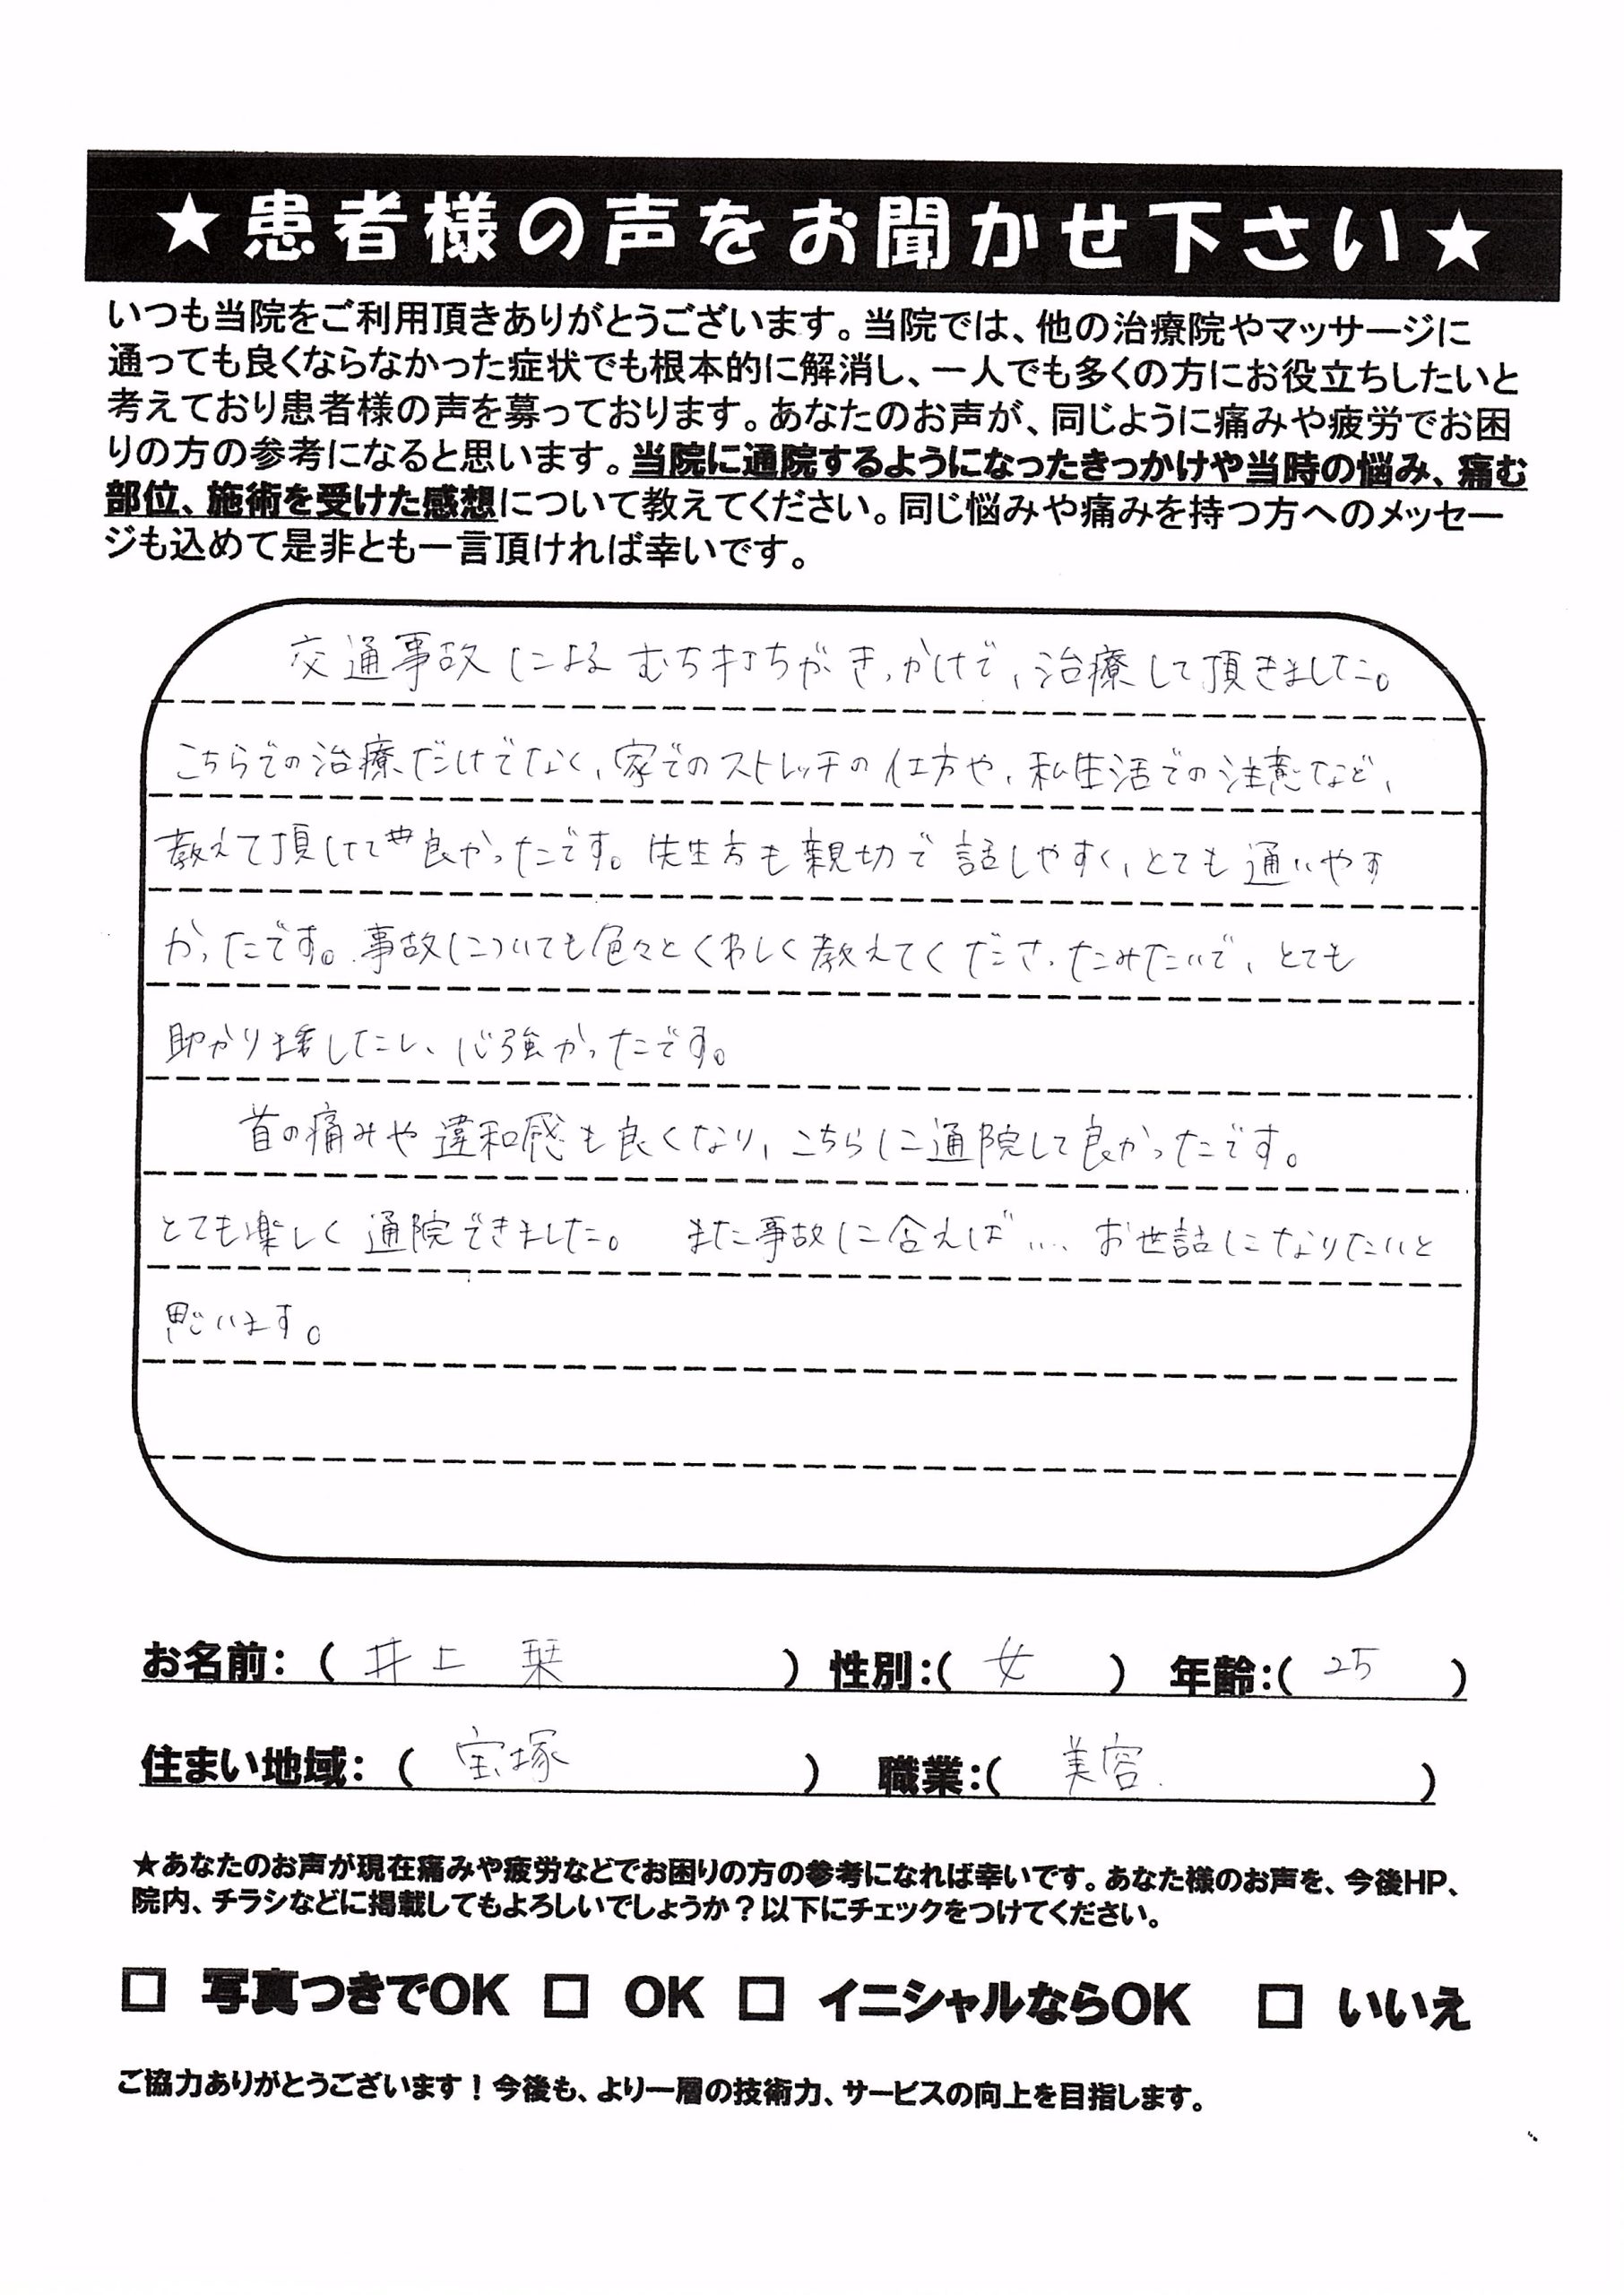 ★患者様の声をお聞かせ下さい★
いつも当院をご利用頂きありがとうございます。当院では、他の治療院やマッサージに
通っても良くならなかった症状でも根本的に解消し、一人でも多くの方にお役立ちしたいと
考えており患者様の声を募っております。あなたのお声が、同じように痛みや疲労でお困
りの方の参考になると思います。当院に通院するようになったきっかけや当時の悩み、痛む
部位、施術を受けた感想について教えてください。同じ悩みや痛みを持つ方へのメッセー
ジも込めて是非とも一言頂ければ幸いです。
交通事故によるむち打ちがきっかけで、治療して頂きました。
こちらでの治療だけでなく、家でのストレッチの仕方や、私生活での注意など、
教えて頂けて良かったです。先生方も親切で話しやすく、とても通いやす
かったです。事故についても色々とくわしく教えてくださったみたいで、とても
助かりましたし、心強かったです。
首の痛みや違和感も良くなり、こちらに通院して良かったです。
とても楽しく通院できました。 また事故に合えば… お世話になりたいと
思います。
お名前：（ 井上 栞 ） 性別：（ 女 ） 年齢：（ 25 ）
住まい地域：（ 宝塚 ） 職業：（ 美容 ）
★あなたのお声が現在痛みや疲労などでお困りの方の参考になれば幸いです。あなた様のお声を、今後HP、
院内、チラシなどに掲載してもよろしいでしょうか？以下にチェックをつけてください。
□ 写真つきでOK □ OK □ イニシャルならOK □ いいえ
ご協力ありがとうございます！今後も、より一層の技術力、サービスの向上を目指します。